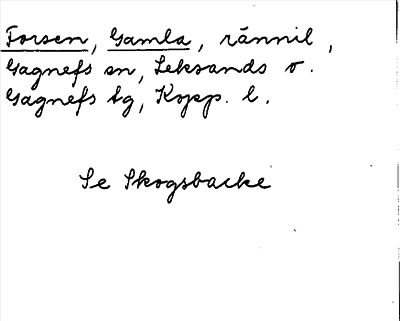 Forsen, Gamla, rännil,
Gagnefs sn, Leksands o.
Gagnefs tg, Kopp. l.
Se Skogsbacke